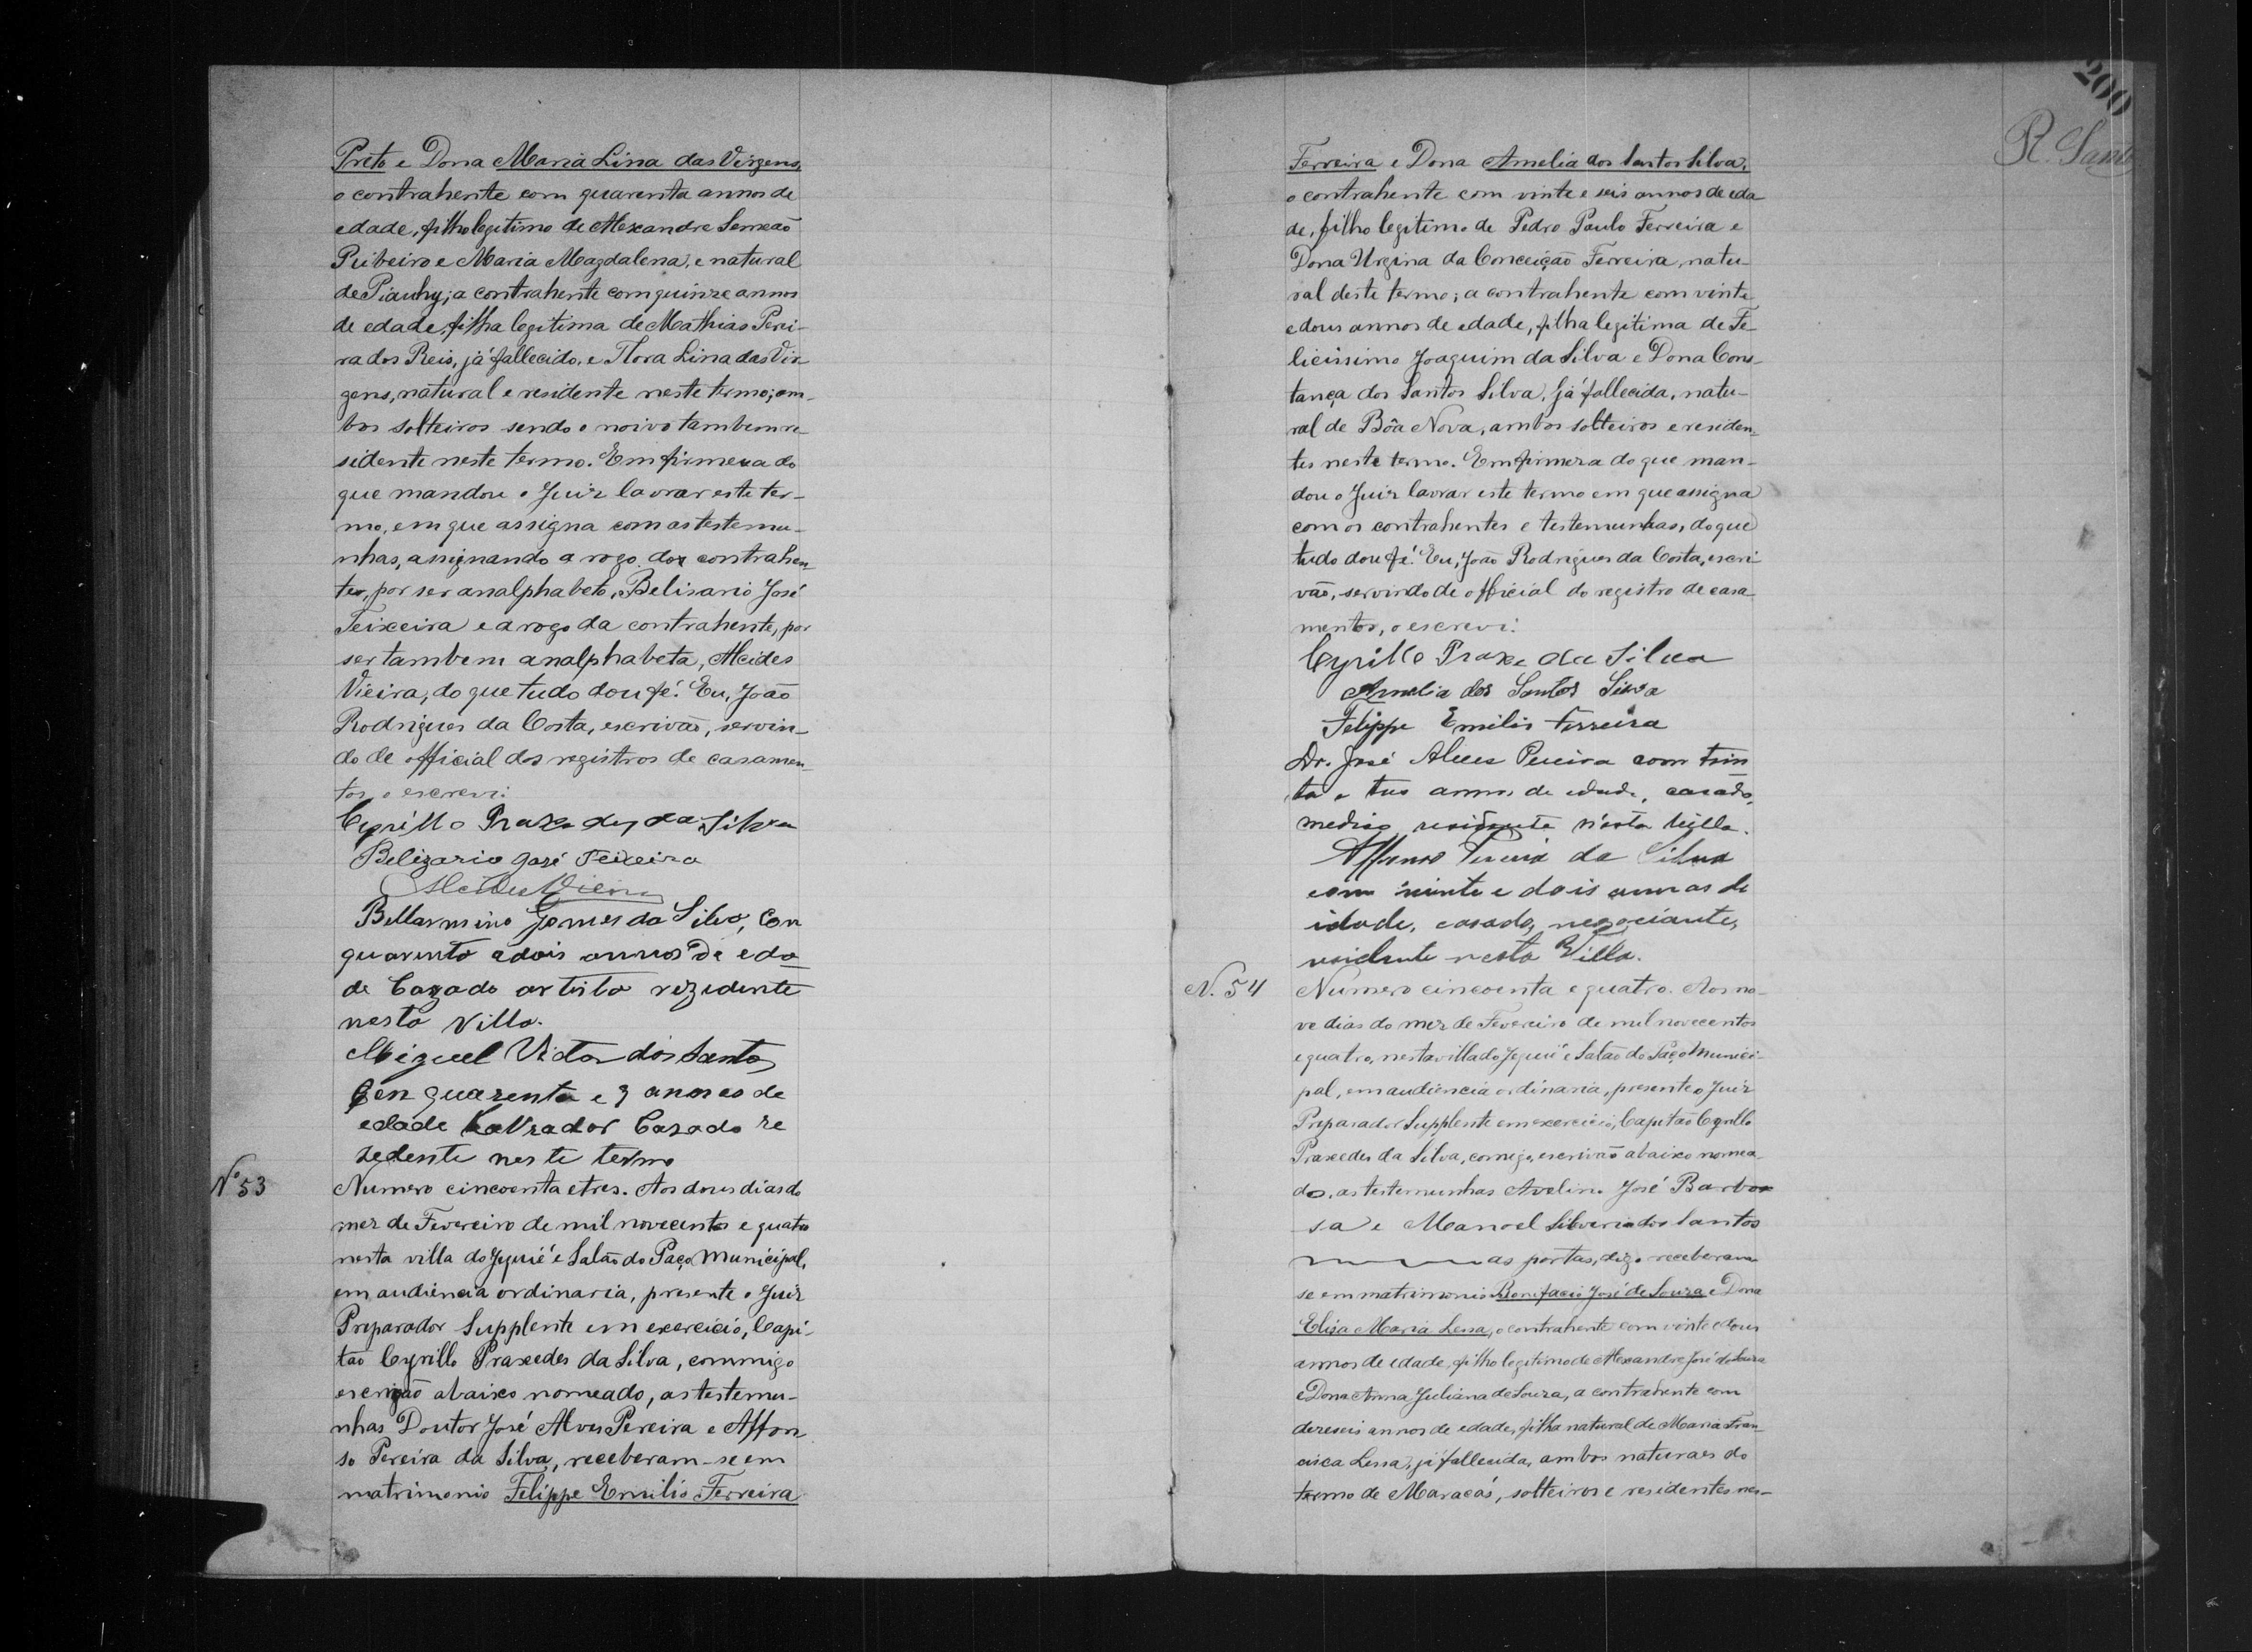 Preto e Dona Maria Lina das Virgens,
o contrahente com quarenta annos de
edade, filho legitimo de Alexandre Semeão
Ribeiro e Maria Magdalena, e natural
de Piauhy; a contrahente com quinze annos
de edade, filha legitima de Mathias Perei-
ra dos Reis, já fallecido, e Flora Lina das Vir-
gens, natural e residente neste termo; am-
bos solteiros sendo o noivo tambem re-
sidente neste termo. Em firmeza do
que mandou o Juiz lavrar este ter-
mo, em que assigna com as testemu-
nhas, assignando a rogo dos contrahen-
tes, por ser analphabeto, Belisario José
Teixeira e a rogo da contrahente, por
ser tambem analphabeta, Alcides
Vieira, do que tudo dou fé. Eu, João
Rodrigues da Costa, escrivão, servin-
do de official dos registros de casamen-
tos, o escrevi.
Cyrillo Praxedes da Silva
Belizario José Teixeira
Alcides Vieira
Bellarmino Gomes da Silva, Con
quarenta e dois annos de eda
de Cazado artista rezidente
nesta Villa.
Miguel Victor dos Santos
Con quarenta e 3 annos de
edade Lavrador Casado re
zedente neste termo
Nº 53
Numero cincoenta e tres. Aos dous dias do
mez de Fevereiro de mil novecentos e quatro
nesta villa do Jequié e Salão do Paço Municipal,
em audiencia ordinaria, presente o Juiz
Preparador Supplente em exercicio, Capi-
tão Cyrillo Praxedes da Silva, commigo
escrivão abaixo nomeado, as testemu-
nhas Doutor José Alves Pereira e Affon
so Pereira da Silva, receberam-se em
matrimonio Felippe Emilio Ferreira
200
R. Sant
Ferreira e Dona Amelia dos Santos Silva,
o contrahente com vinte e seis annos de eda
de, filho legitimo de Pedro Paulo Ferreira e
Dona Urgina da Conceição Ferreira, natu-
ral deste termo; a contrahente com vinte
e dous annos de edade, filha legitima de Fe
licissimo Joaquim da Silva e Dona Cons-
tança dos Santos Silva, já fallecida, natu-
ral de Bôa Nova, ambos solteiros e residen-
tes neste termo. Em firmeza do que man-
dou o Juiz lavrar este termo em que assigna
com os contrahentes e testemunhas, do que
tudo dou fé. Eu, João Rodrigues da Costa, escri-
vão, servindo de official do registro de casa
mentos, o escrevi.
Cyrillo Praxe da Silva
Amelia dos Santos Silva
Felippe Emilio Ferreira
Dr. José Alves Pereira com trin
ta e tres annos de edade, casado,
medico, residente n'esta Villa.
Affonso Pereira da Silva
com vinte e dois annos de
idade, casado, negociante,
residente nesta Villa.
N. 54
Numero cincoenta e quatro. Aos no-
ve dias do mez de Fevereiro de mil novecentos
e quatro, nesta villa do Jequié e Salão do Paço Munici-
pal, em audiencia ordinaria, presente o Juiz
Preparador Supplente em exercicio, Capitão Cyrillo
Praxedes da Silva, comigo, escrivão abaixo nomea-
do, as testemunhas Avelino José Barbo
sa e Manoel Silverio dos Santos
as portas, digo receberam
se em matrimonio Bonifacio José de Souza e Dona
Elisa Maria Lessa, o contrahente com vinte e dous
annos de edade, filho legitimo de Alexandre José de Souza
e Dona Anna Juliana de Souza, a contrahente com
dezeseis annos de edade, filha natural de Maria Fran-
cisca Lessa, já fallecida, ambos naturaes do
termo de Maracás, solteiros e residentes nes-